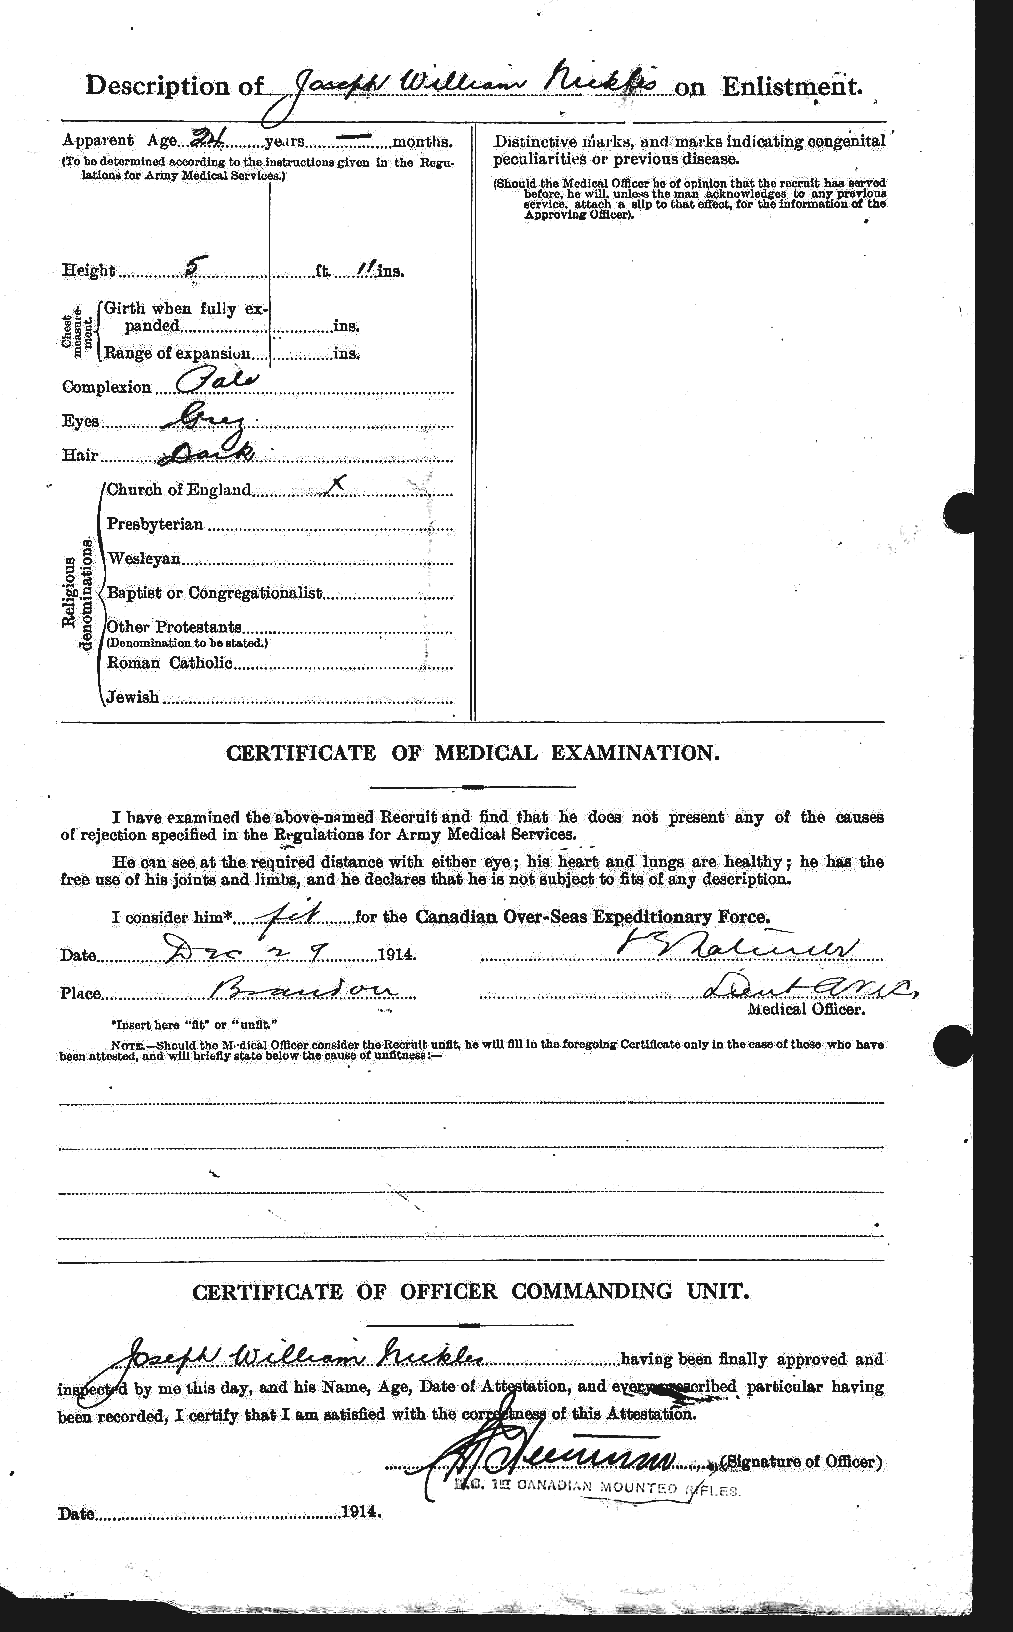 Description of Joseph William Nickles on Enlistment.
Apparent Age 24 years — months.
(To be determined according to the instructions given in the Regu-
lations for Army Medical Services.)
Height 5 ft. 11 ins.
Chest measure-ment.
Girth when fully ex-
panded ins.
Range of expansion ins.
Complexion Pale
Eyes Grey
Hair Dark
Religious denominations.
Church of England x
Presbyterian
Wesleyan
Baptist or Congregationalist
Other Protestants
(Denomination to be stated.)
Roman Catholic
Jewish
Distinctive marks, and marks indicating congenital
peculiarities or previous disease.
(Should the Medical Officer be of opinion that the recruit has served
before, he will, unless the man acknowledges to any previous
service, attach a slip to that effect, for the information of the
Approving Officer).
CERTIFICATE OF MEDICAL EXAMINATION.
I have examined the above-named Recruit and find that he does not present any of the causes
of rejection specified in the Regulations for Army Medical Services.
He can see at the required distance with either eye; his heart and lungs are healthy; he has the
free use of his joints and limbs, and he declares that he is not subject to fits of any description.
I consider him* fit for the Canadian Over-Seas Expeditionary Force.
Date Dec 29 1914.
Place Brandon
Lieut
Medical Officer.
*Insert here "fit" or "unfit."
NOTE.—Should the Medical Officer consider the Recruit unfit, he will fill in the foregoing Certificate only in the case of those who have
been attested, and will briefly state below the cause of unfitness:—
CERTIFICATE OF OFFICER COMMANDING UNIT.
Joseph William Nickles having been finally approved and
inspected by me this day, and his Name, Age, Date of Attestation, and every prescribed particular having
been recorded, I certify that I am satisfied with the correctness of this Attestation.
(Signature of Officer)
O.C. 1ST CANADIAN MOUNTED RIFLES.
Date 1914.